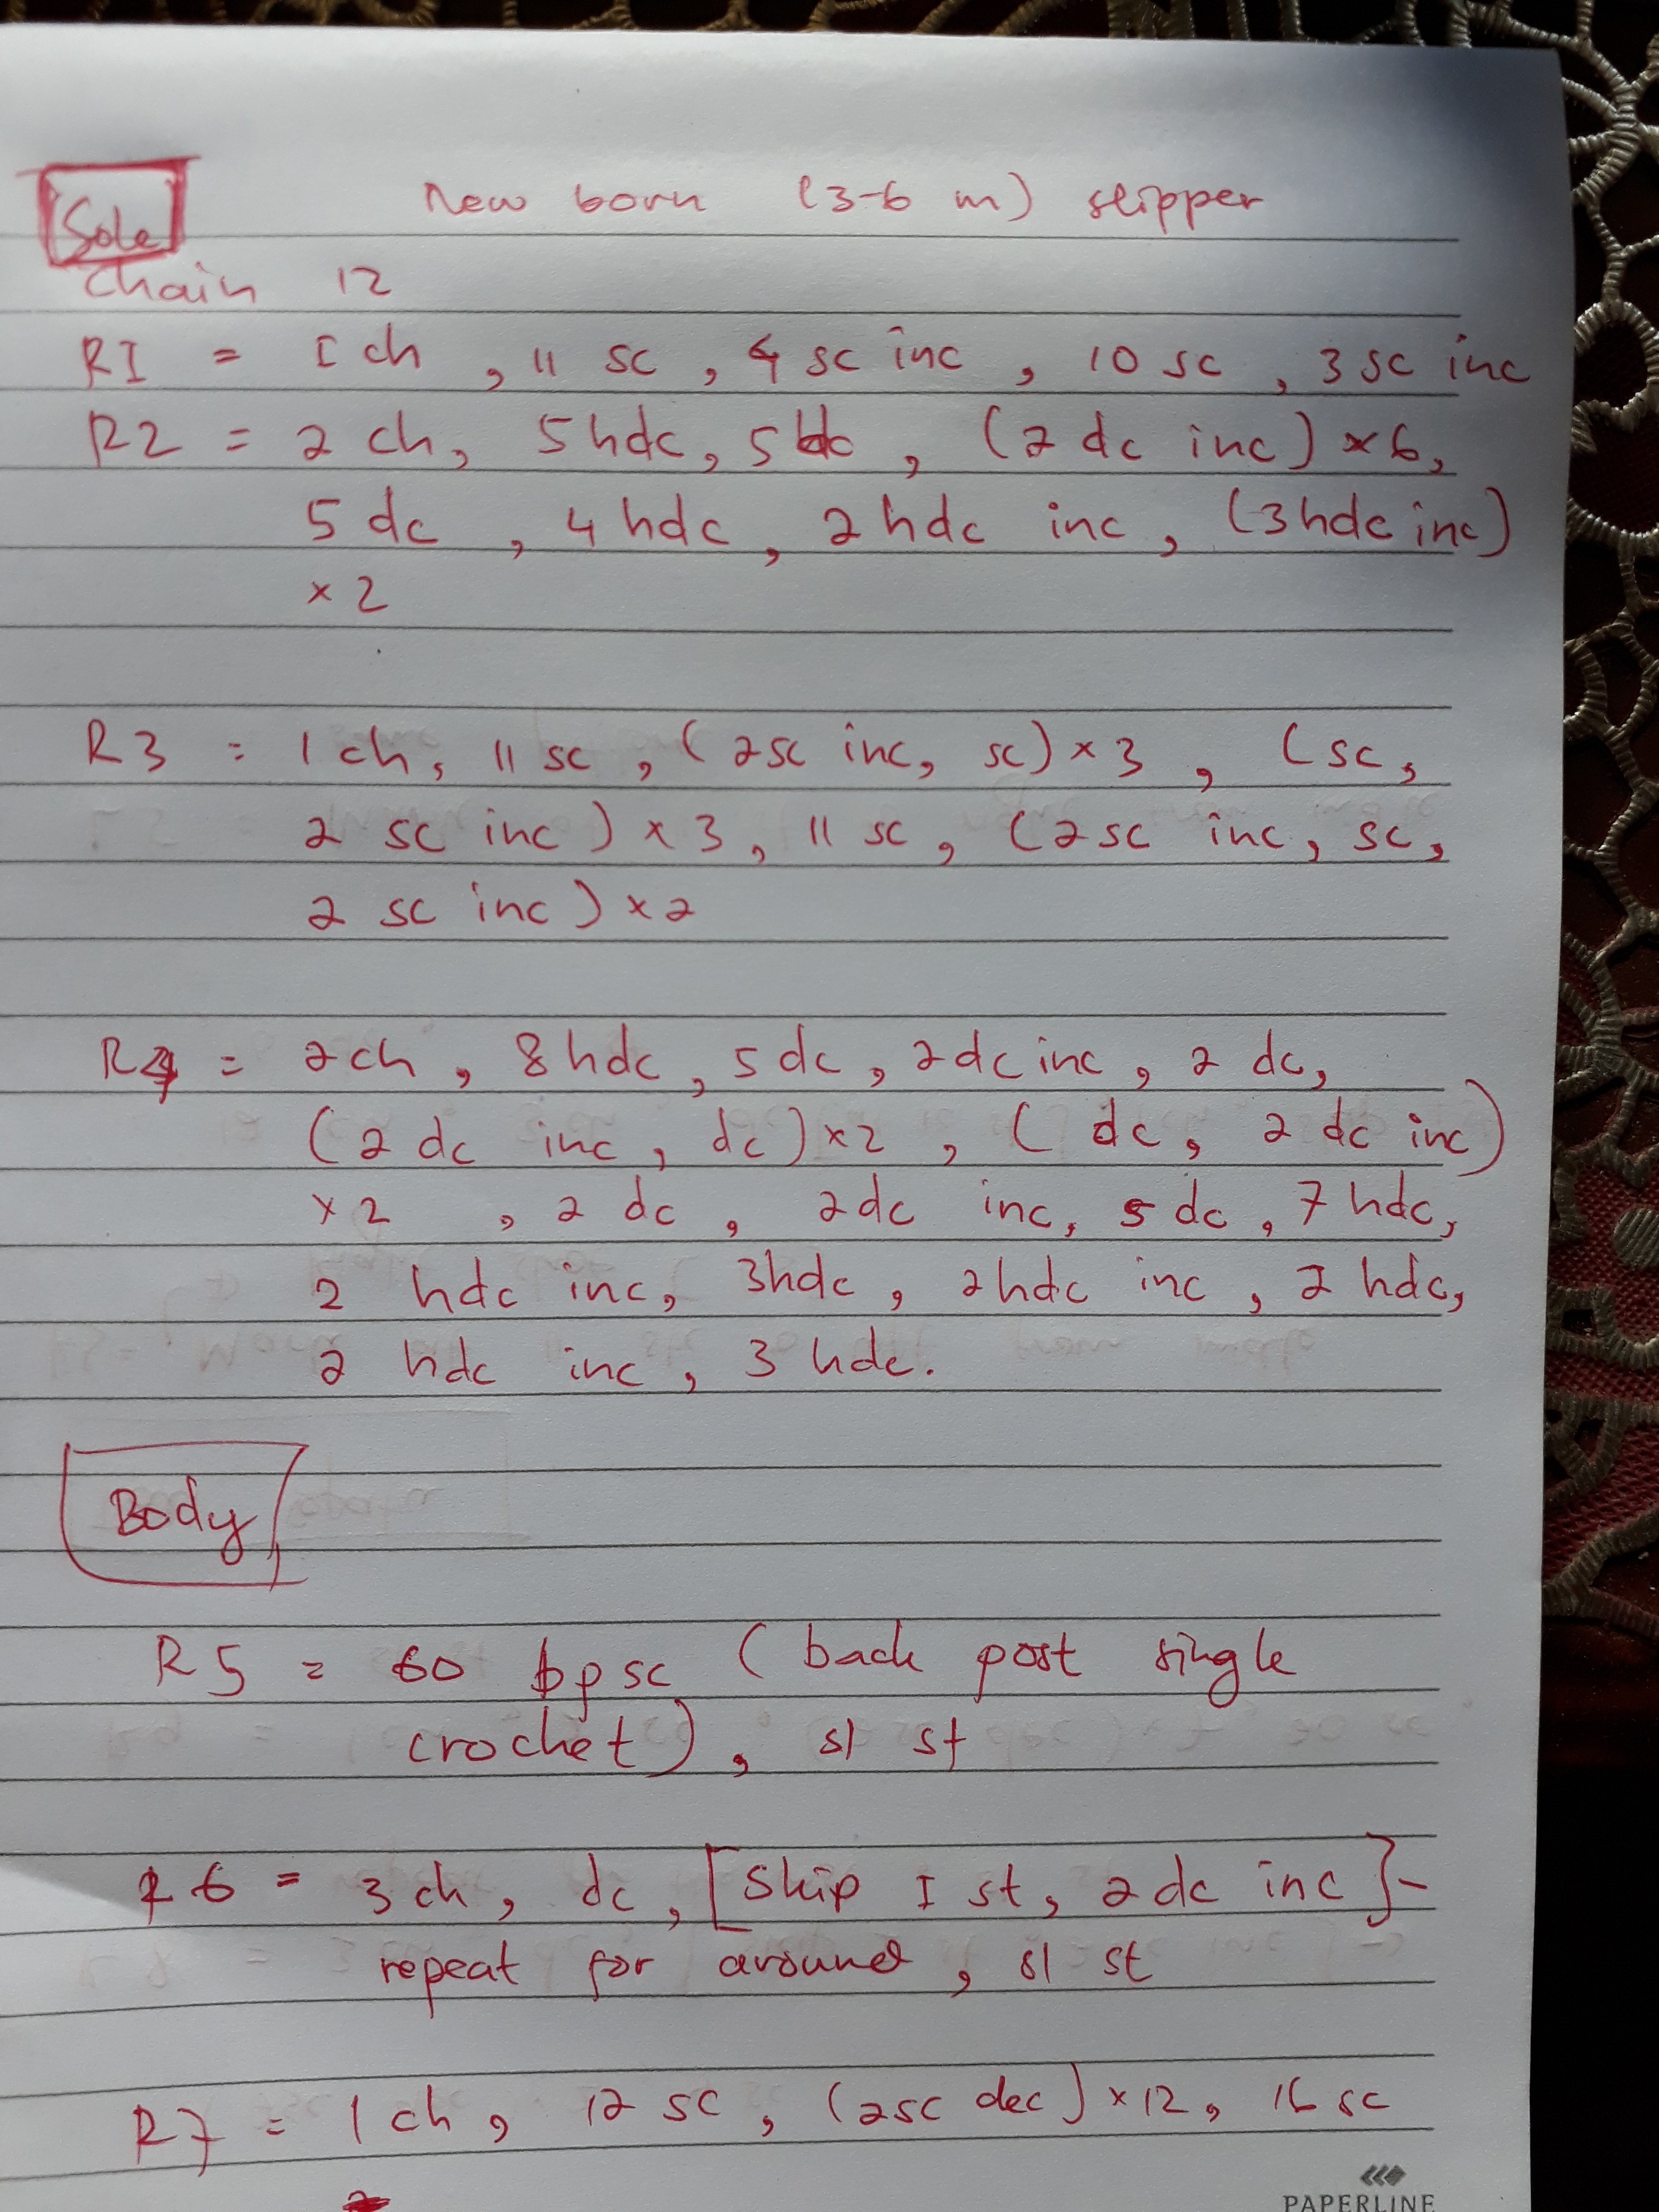 Sole
New born (3-6 m) slipper
Chain 12
R1 = 1 ch, 11 sc, 4 sc inc, 10 sc, 3 sc inc
R2 = 2 ch, 5 hdc, 5 dc, (2 dc inc) x 6,
5 dc, 4 hdc, 2 hdc inc, (3 hdc inc)
x 2
R3 = 1 ch, 11 sc, (2sc inc, sc) x 3, (sc,
2 sc inc) x 3, 11 sc, (2sc inc, sc,
2 sc inc) x 2
R4 = 2ch, 8 hdc, 5 dc, 2 dc inc, 2 dc,
(2 dc inc, dc) x 2, (dc, 2 dc inc)
x 2, 2 dc, 2dc inc, 5 dc, 7 hdc,
2 hdc inc, 3hdc, 2hdc inc, 2 hdc,
2 hdc inc, 3 hdc.
Body
R5 = 60 bpsc (back post single
crochet), sl st
R6 = 3 ch, dc, [Skip 1 st, 2dc inc]-
repeat for around, sl st
R7 = 1 ch, 12 sc, (2sc dec) x 12, 16 sc
PAPERLINE